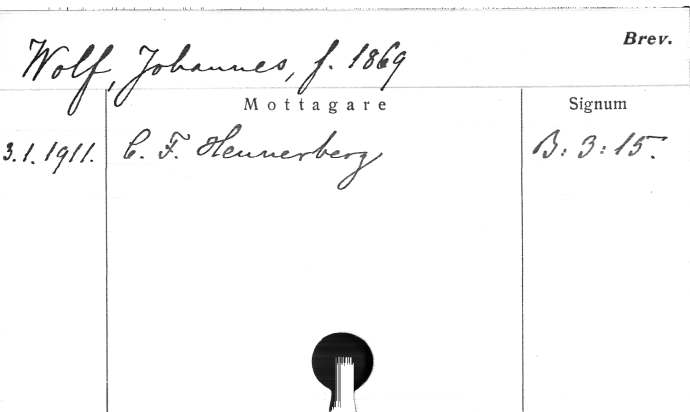 Brev.
Wolf, Johannes, f. 1869
Mottagare Signum
3.1.1911. C. F. Hennerberg B: 3:15.